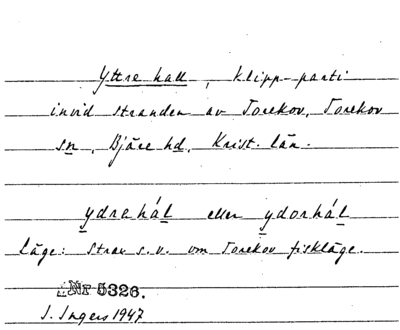 Yttre hall, klipp-parti
invid stranden av Torekov, Torekov
sn, Bjäre hd, Krist. län.
ydrahál eller ydorhál
Läge: strax s.v. om Torekov fiskläge.
Nr 5326.
I. Ingers 1947